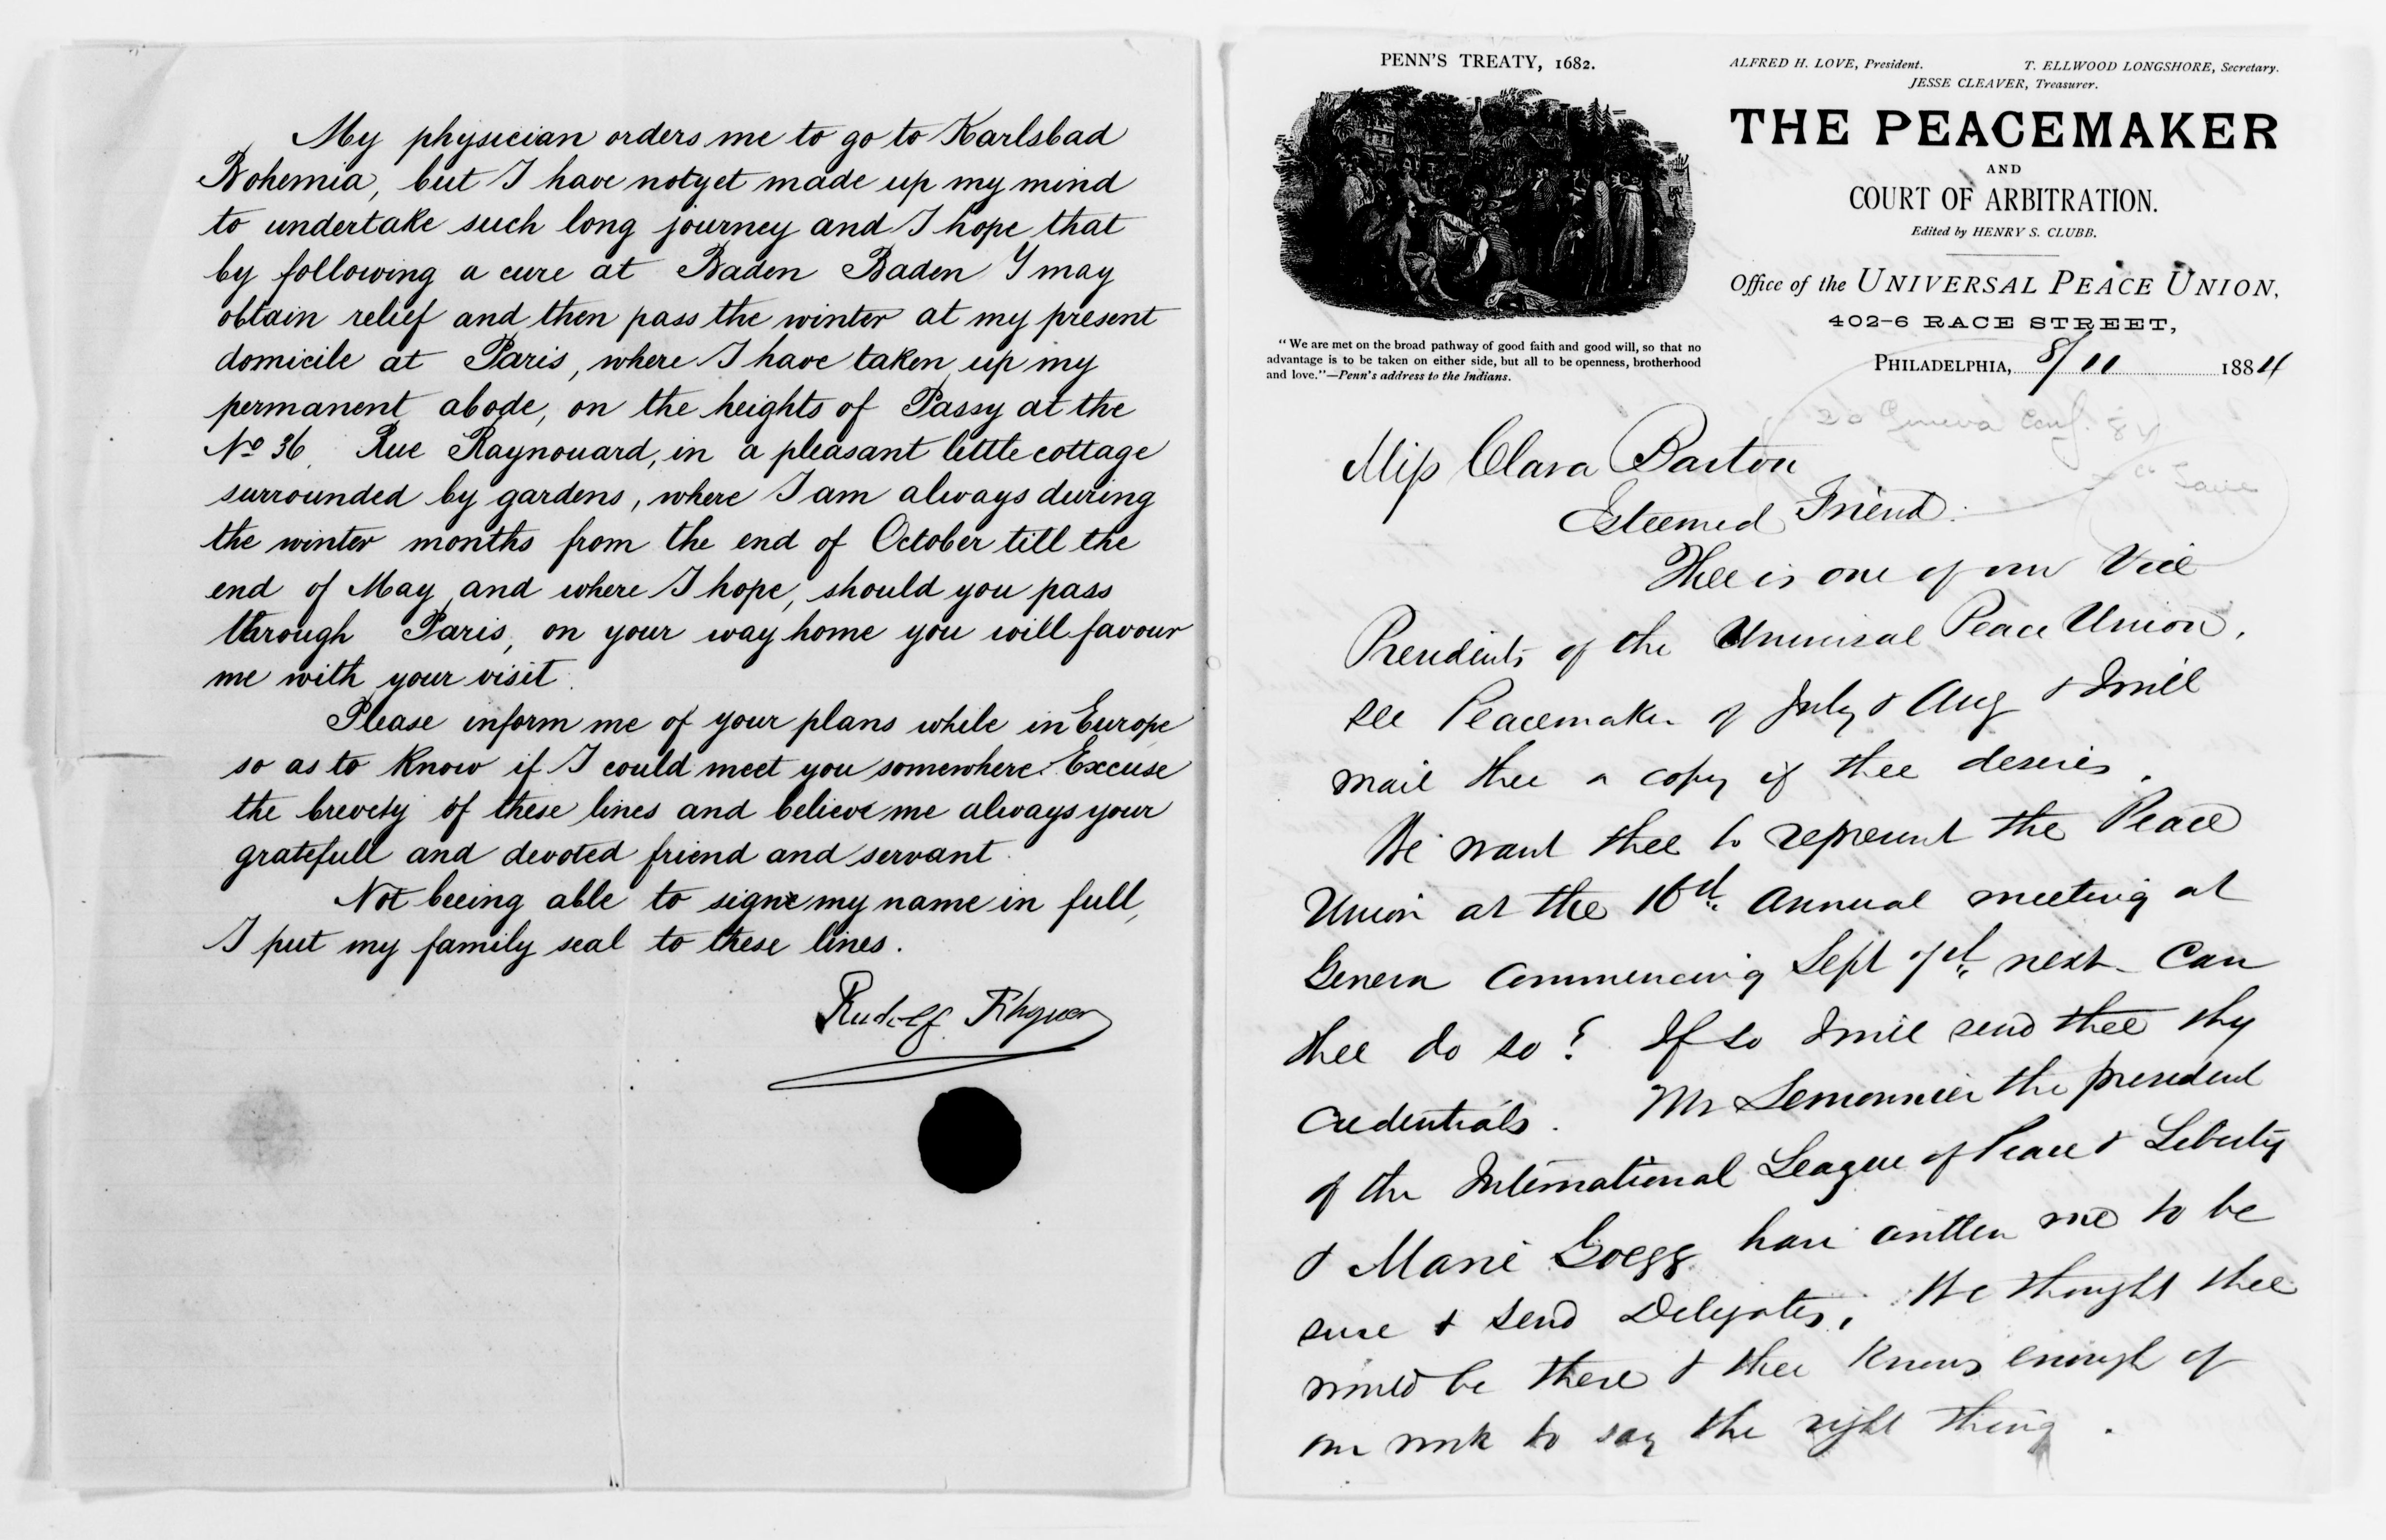 My physician orders me to go to Karlsbad
Bohemia, but I have not yet made up my mind
to undertake such long journey and I hope that
by following a cure at Baden Baden I may
obtain relief and then pass the winter at my present
domicile at Paris, where I have taken up my
permanent abode, on the heights of Passy at the
No 36, Rue Raynouard, in a pleasant little cottage
surrounded by gardens, where I am always during
the winter months from the end of October till the
end of May, and where I hope, should you pass
through Paris, on your way home you will favour
me with your visit.
Please inform me of your plans while in Europe
so as to know if I could meet you somewhere. Excuse
the brevety of these lines and believe me always your
gratefull and devoted friend and servant.
Not beeing able to signe my name in full,
I put my family seal to these lines.
Rudolf
PENN'S TREATY, 1682.
"We are met on the broad pathway of good faith and good will, so that no
advantage is to be taken on either side, but all to be openness, brotherhood
and love."—Penn's address to the Indians.
ALFRED H. LOVE, President. T. ELLWOOD LONGSHORE, Secretary.
JESSE CLEAVER, Treasurer.
THE PEACEMAKER
AND
COURT OF ARBITRATION.
Edited by HENRY S. CLUBB.
Office of the UNIVERSAL PEACE UNION,
402-6 RACE STREET,
PHILADELPHIA, 8/11 1884
Geneva Conf. 84
Miss Clara Barton
Esteemed Friend.
Thee is one of our Vice
Presidents of the Universal Peace Union,
see Peacemaker of July & Aug & I will
mail thee a copy if thee desires.
We want thee to represent the Peace
Union at the 16th annual meeting at
Geneva commencing Sept 7th next. Can
thee do so? If so I will send thee thy
credentials. Mr Lemonnier the president
of the International League of Peace & Liberty
& Marie Goegg have written me to be
sure & send Delegates, We thought thee
would be there & thee knows enough of
our work to say the right thing.